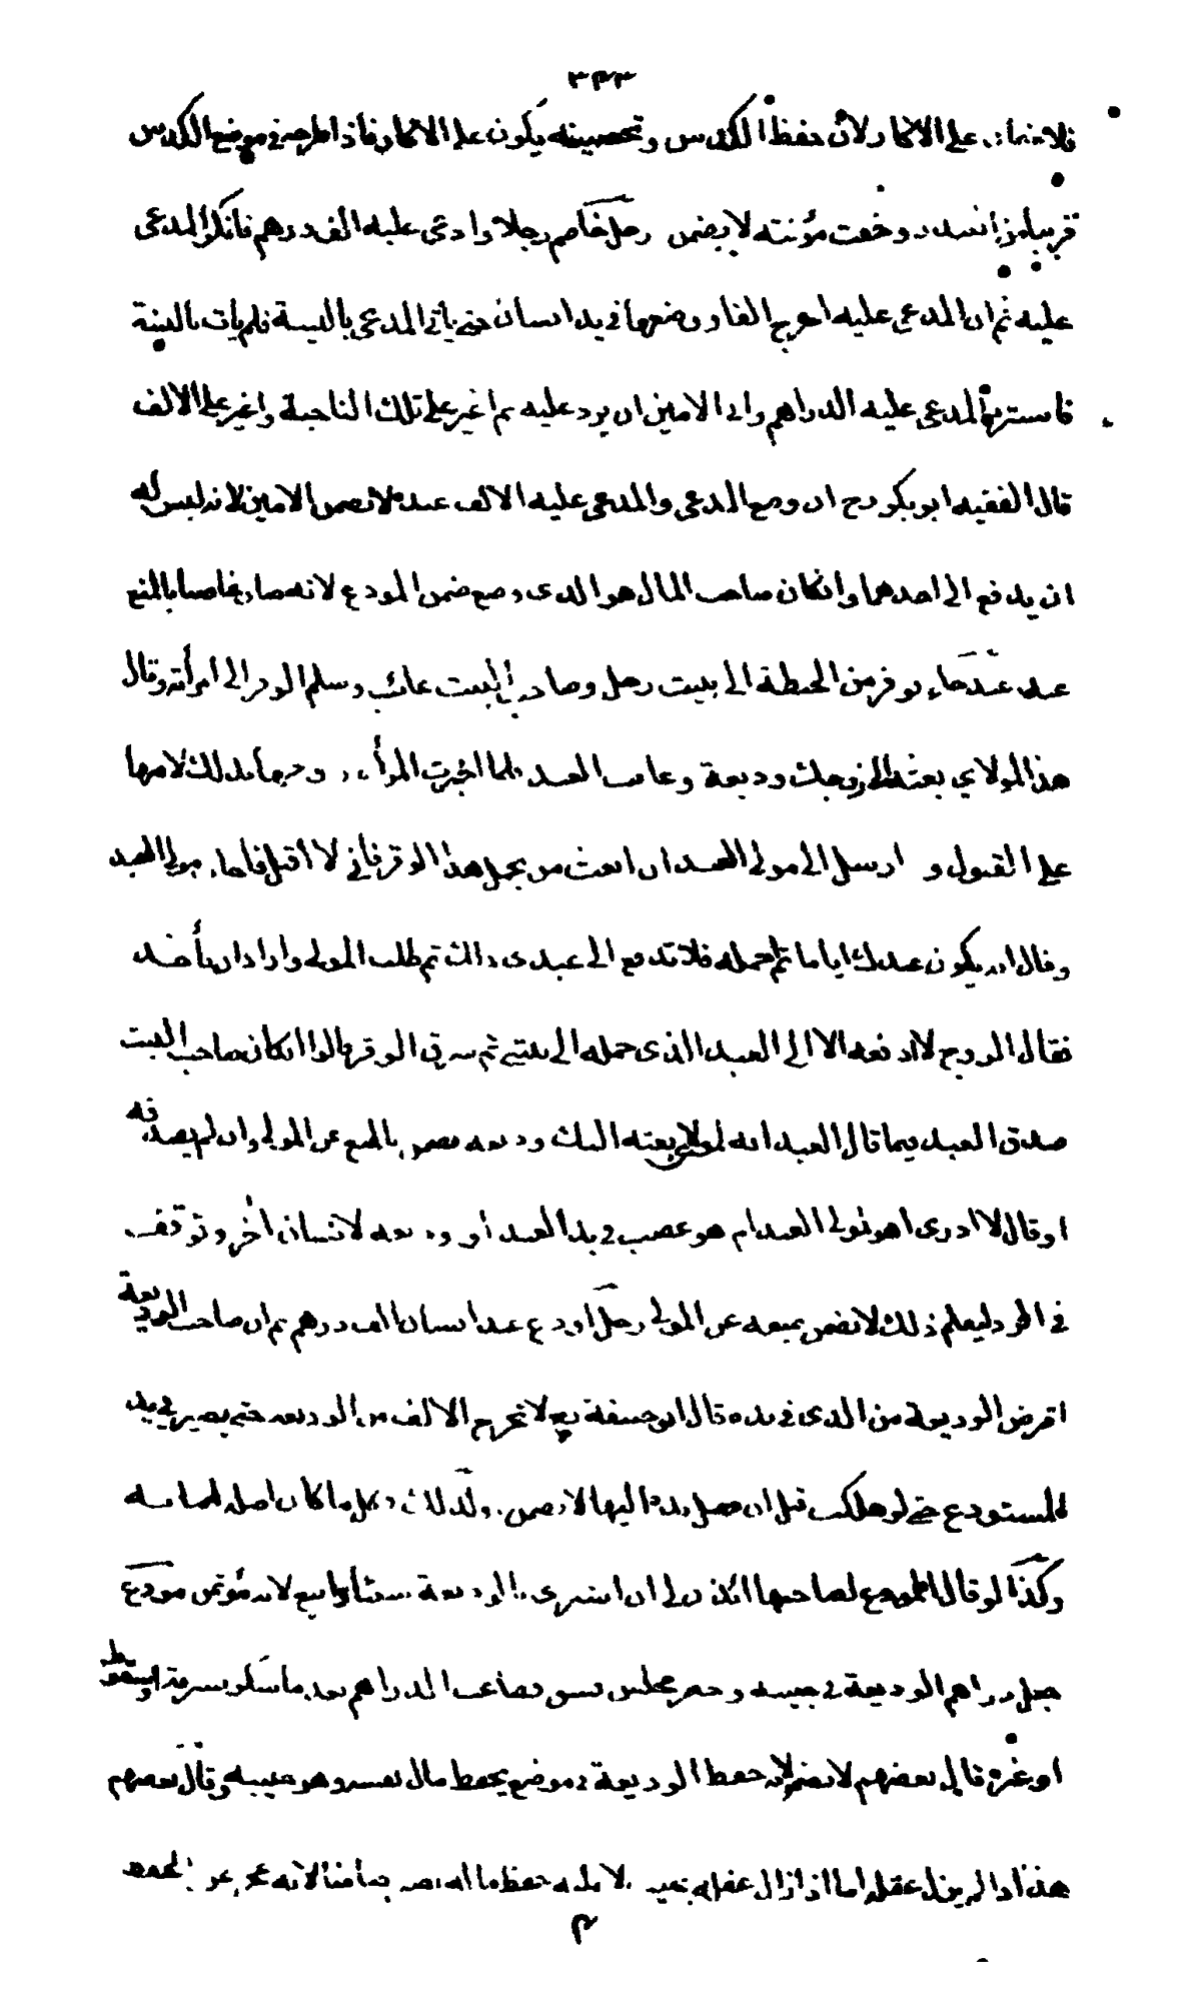 ٣٤٣
فلا ضمان على الاكار لان حفظ الكدس وتحصينه يكون على الاكار فاذا طرحه في موضع الكدس
قريبا من وخفت مؤنته لا يضمن رجل خاصم رجلا وادعى عليه الف درهم فانكر المدعى
عليه ثم ان المدعى عليه اخرج الفا ووضعها في يد انسان حتى ياتي المدعي بالبينة فلم يات بالبينة
فاسترد المدعى عليه الدراهم وابى الامين ان يرد عليه ثم اغير على تلك الناحية واغير على الالف
قال الفقيه ابو بكر رح ان وضع المدعي والمدعى عليه الالف عنده لا يضمن الامين لانه ليس له
ان يدفع الى احدهما وان كان صاحب المال هو الذى وضع ضمن المودع لانه صار غاصبا بالمنع
عنه عبد جاء بوقر من الحنطة الى بيت رجل وصاحب البيت غائب وسلم الوقر الى امرأته وقال
هذا لمولاي بعثه الى زوجك وديعة وغاب العبد فلما اخبرت المرأة زوجها بذلك لامها
على القبول و ارسل الى مولى العبد ان ابعث من يحمل هذا الوقر فاني لا اقبل فاجاب مولى العبد
وقال انه يكون عندك اياما ثم احمله فلا تدفع الى عبدى ذلك ثم طلب المولى واراد ان يأخذه
فقال الزوج لا ادفعه الا الى العبد الذى حمله الى بيتي ثم سرق الوقر قالوا ان كان صاحب البيت
صدق العبد فيما قال العبد انه لمولاي بعثه اليك وديعة يضمن بالمنع عن المولى وان لم يصدقه
او قال لا ادرى اهو لمولى العبد ام هو غصب في يد العبد او وديعة لانسان اخر وتوقف
في الرد ليعلم ذلك لا يضمن بمنعه عن المولى رجل اودع عند انسان الف درهم ثم ان صاحب الوديعة
اقرض الوديعة من الذى في يده قال ابو حنيفة رح لا تخرج الالف من الوديعة حتى يصير في يد
المستودع حتى لو هلكت قبل ان تصل يده اليها لا يضمن وكذلك كل ما كان اصله امانة
وكذا لو قال المودع لصاحبها ائذن لى ان اشترى بالوديعة شيئا وابيع لانه مؤتمن مودع
جعل دراهم الوديعة في جيبه وحضر مجلس فسق فضاعت الدراهم بعد ما سكر بسرقة او سقوط
او غيره قال بعضهم لا يضمن لانه حفظ الوديعة في موضع يحفظ مال نفسه وهو جيبه وقال بعضهم
هذا اذا لم يزل عقله اما اذا زال عقله بحيث لا يمكنه حفظ ماله يصير ضامنا لانه عجز عن الحفظ
م